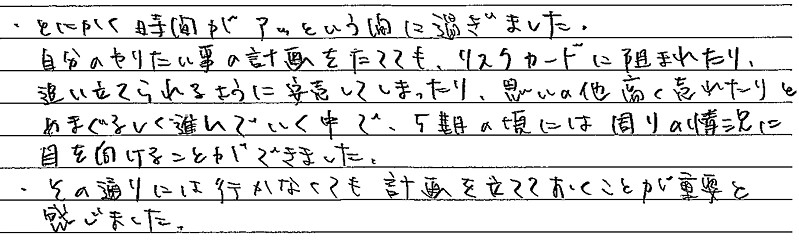 ・とにかく時間がアッという間に過ぎました。
自分のやりたい事の計画をたてても、リスクカードに阻まれたり、
追い立てられるように完売してしまったり、思いの他高く売れたりと
めまぐるしく進んでいく中で、5期の頃には周りの情況に
目を向けることができました。
・その通りには行かなくても計画を立てておくことが重要と
感じました。